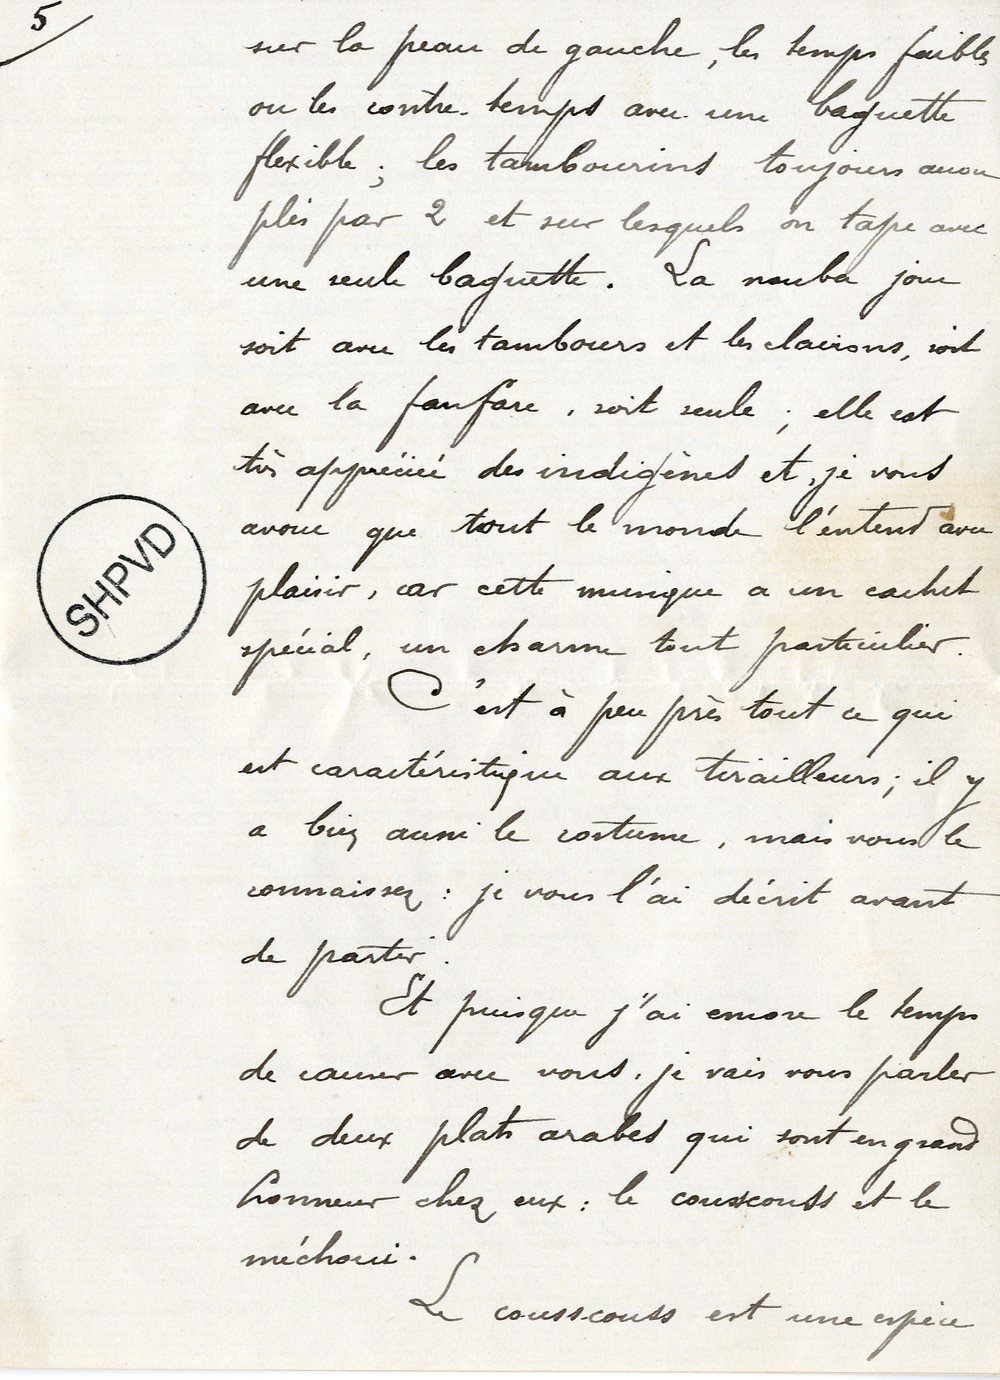 5
sur la peau de gauche, les temps faibles
ou les contre-temps avec une baguette
flexible ; les tambourins toujours accou
plés par 2 et sur lesquels on tape avec
une seule baguette. La nouba joue
soit avec les tambours et les clairons, soit
avec la fanfare, soit seule ; elle est
très appréciée des indigènes et, je vous
avoue que tout le monde l'entend avec
plaisir, car cette musique a un cachet
spécial, un charme tout particulier.
SHPVD
C'est à peu près tout ce qui
est caractéristique aux tirailleurs ; il y
a bien aussi le costume, mais vous le
connaissez : je vous l'ai décrit avant
de partir.
Et puisque j'ai encore le temps
de causer avec vous, je vais vous parler
de deux plats arabes qui sont en grand
honneur chez eux : le cousscouss et le
méchoui.
Le cousscouss est une espèce